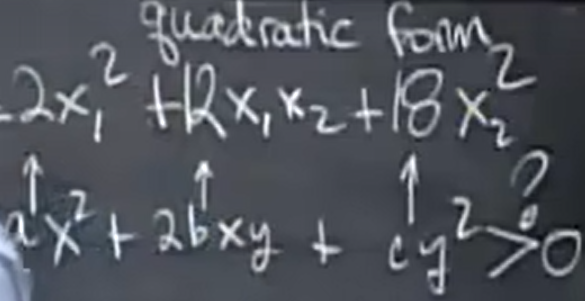 quadratic form
2x₁² + 12x₁x₂ + 18x₂²
↑ ↑ ↑ ?
ax² + 2bxy + cy² > 0